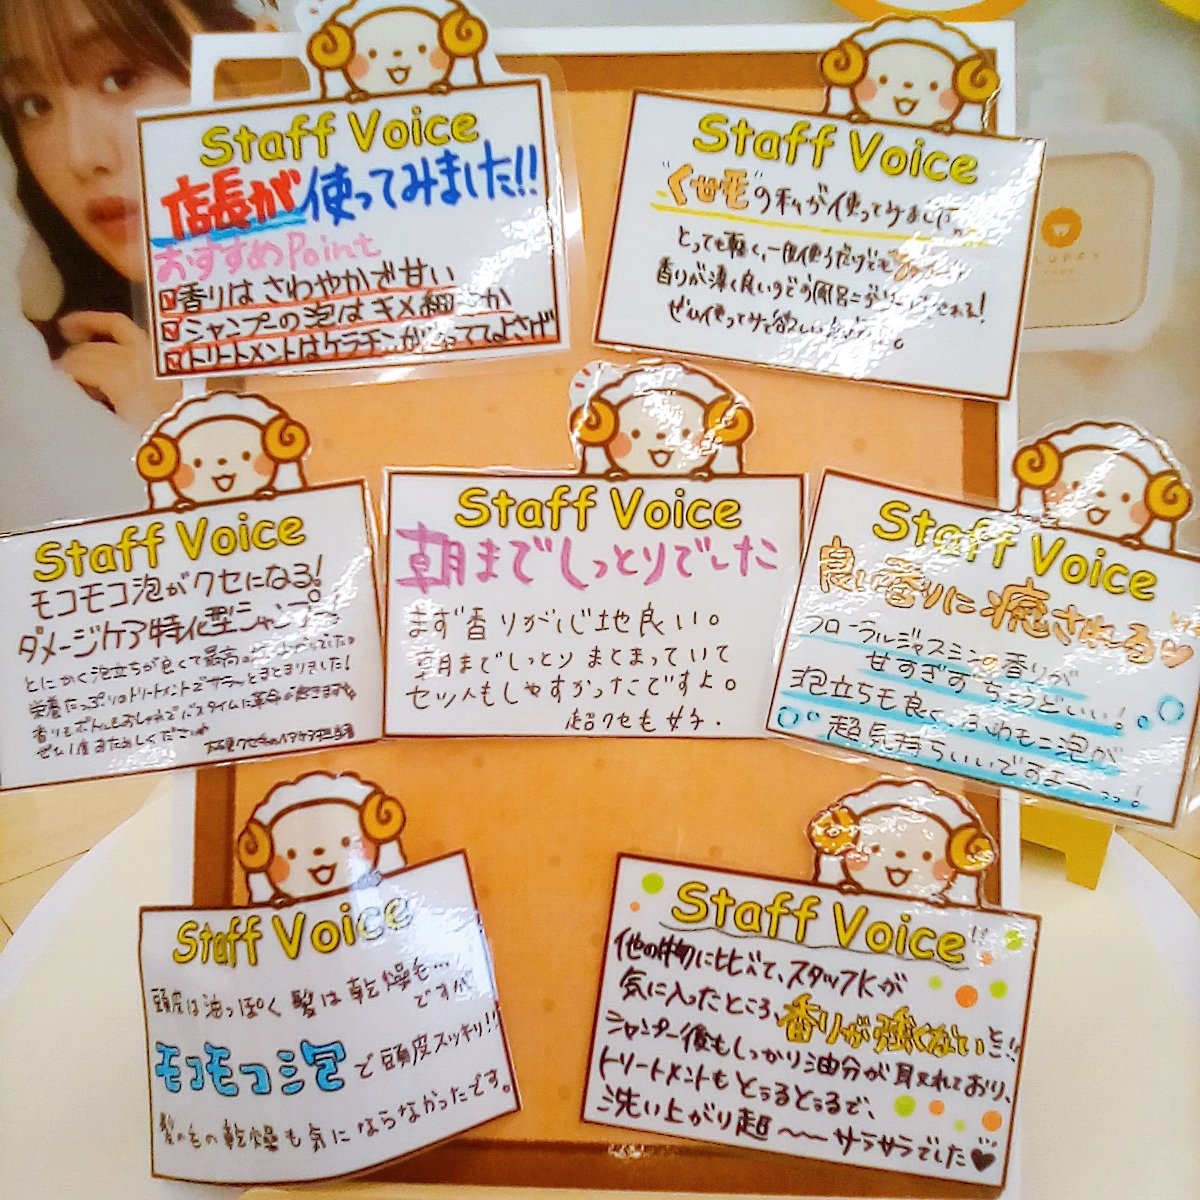 Staff Voice
店長が使ってみました!!
おすすめPoint
香りは さわやかで甘い
シャンプーの泡は キメ細やか
トリートメントはケラチンが入っててよさげ
Staff Voice
"くせ毛"の私が使ってみました。
とっても軽く、一度使うだけでも
香りが凄く良いのでお風呂
ぜひ使ってみて欲しい
FLUFFY
Staff Voice
モコモコ泡がクセになる!
ダメージケア特化型シャンプー
とにかく泡立ちが良くて最高の
栄養たっぷりのトリートメントでサラッとまとまりました!
香りも
ぜひ1度お
Staff Voice
朝までしっとりでした
まず香りが心地良い。
朝までしっとり まとまっていて
セットもしやすかったですよ。
超クセ毛 女子.
Staff Voice
良い香りに癒される♡
フローラルジャスミンの香りが
甘すぎず ちょうどいい!
泡立ちも良く、ふわモコ泡が
超気持ちいいですよーっっ!
Staff Voice
頭皮は油っぽく 髪は乾燥毛…
ですが
モコモコ泡で頭皮スッキリ!!
髪の毛の乾燥も気にならなかったです。
Staff Voice
他の物に比べて、スタッフKが
気に入ったところ、香りが強くないとこ!!
シャンプー後もしっかり油分が取れており、
トリートメントもとぅるとぅるで、
洗い上がり超〜〜サラサラでした♥